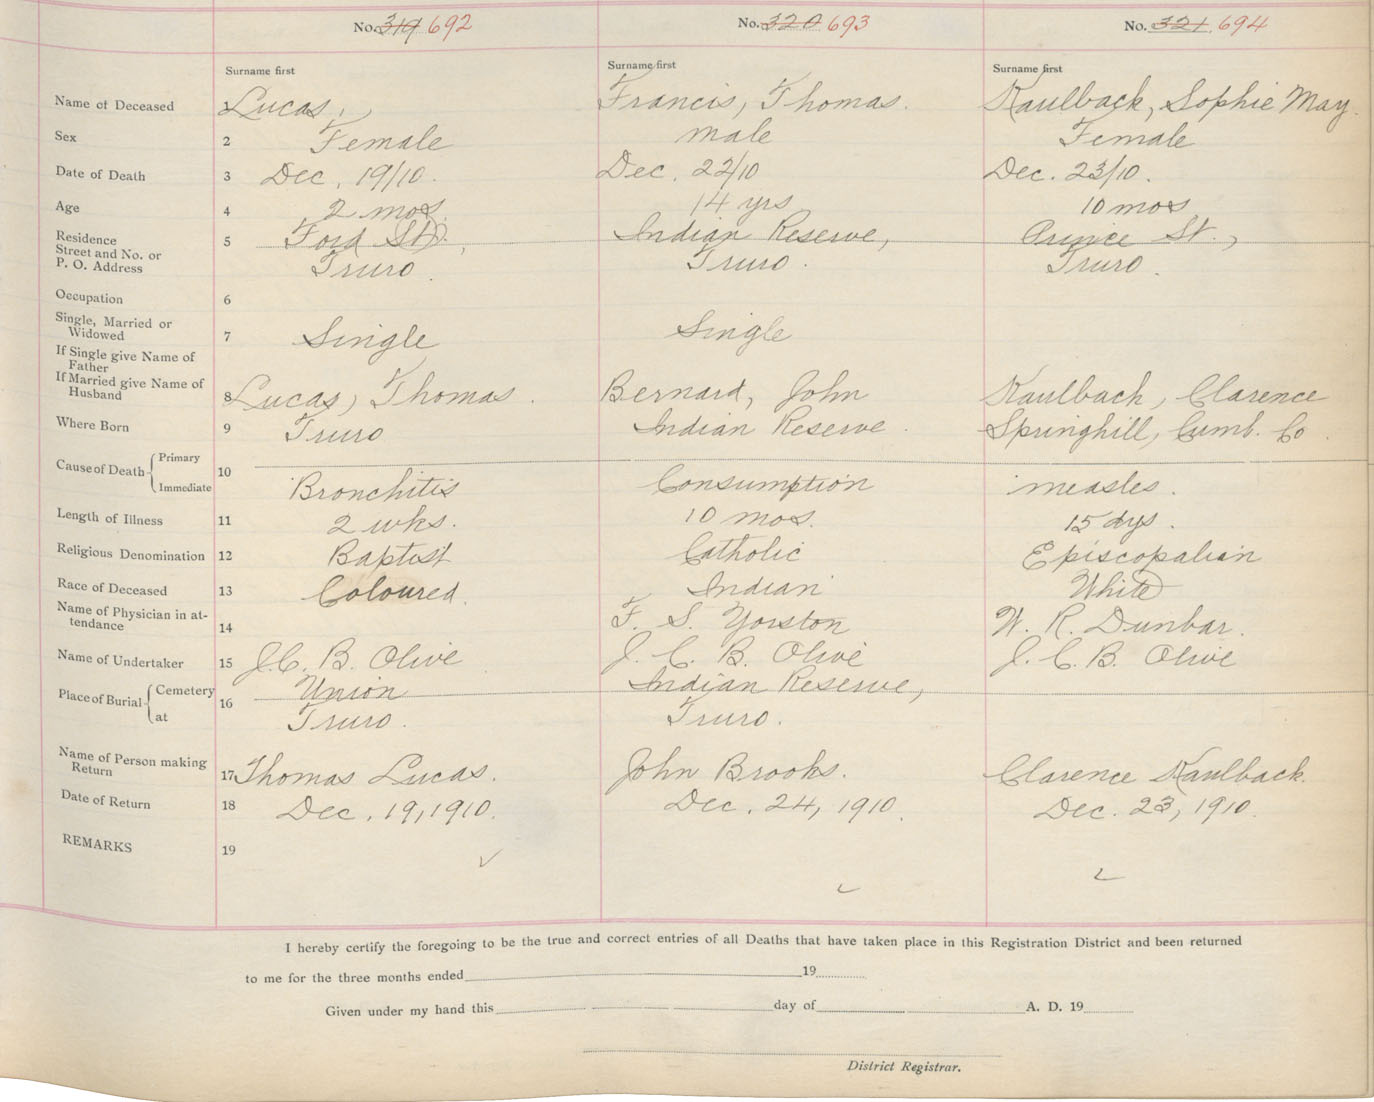 No. 319 692 No. 320 693 No. 321 694
Surname first Surname first Surname first
Name of Deceased 1 Lucas, Francis, Thomas. Kaulback, Sophie May.
Sex 2 Female male Female
Date of Death 3 Dec. 19/10. Dec. 22/10 Dec. 23/10.
Age 4 2 mos. 14 yrs 10 mos
Residence 5 Ford St., Indian Reserve, Prince St.,
Street and No. or
P. O. Address Truro. Truro. Truro.
Occupation 6
Single, Married or
Widowed 7 Single Single
If Single give Name of
Father
If Married give Name of
Husband 8 Lucas, Thomas. Bernard, John Kaulback, Clarence
Where Born 9 Truro Indian Reserve. Springhill, Cumb. Co.
Cause of Death Primary 10
Immediate Bronchitis Consumption measles.
Length of Illness 11 2 wks. 10 mos. 15 dys.
Religious Denomination 12 Baptist Catholic Episcopalian
Race of Deceased 13 Coloured. Indian White
Name of Physician in at-
tendance 14 F. S. Yorston W. R. Dunbar.
Name of Undertaker 15 J. C. B. Olive J. C. B. Olive J. C. B. Olive
Place of Burial Cemetery 16 Union Indian Reserve,
at Truro. Truro.
Name of Person making
Return 17 Thomas Lucas. John Brooks. Clarence Kaulback.
Date of Return 18 Dec. 19, 1910. Dec. 24, 1910. Dec. 23, 1910.
REMARKS 19
I hereby certify the foregoing to be the true and correct entries of all Deaths that have taken place in this Registration District and been returned
to me for the three months ended 19
Given under my hand this day of A. D. 19
District Registrar.